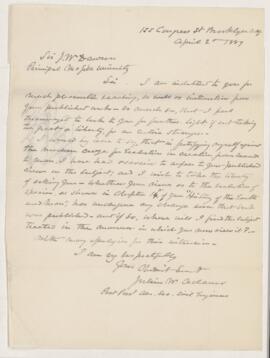 155 Congress St Brooklyn NY
April 2nd 1887
Sir J. W. Dawson
Principal McGill University
Sir I am indebted to you for
much pleasurable reading, as well as instruction from
your published works so much so, that I feel
encouraged to look to you for further light, if not taking
too great a liberty for an entire stranger.
I would say that in fortifying myself against
the modern craze for Evolution in creation
I have had occasion to refer to your published
views on the subject, and I wish to take the liberty
of asking you whether your views as to the evolution of
species as shown in Chapter of your "History of the Earth
and Man", has undergone any change since that work
was published and if so, where will I find the subject
treated in the manner in which you now view it?
With many apologies for this intrusion
I am very respectfully
Your Obedient Servt
Julius W. Adams
Past Prest Am. Soc. Civil Engineers